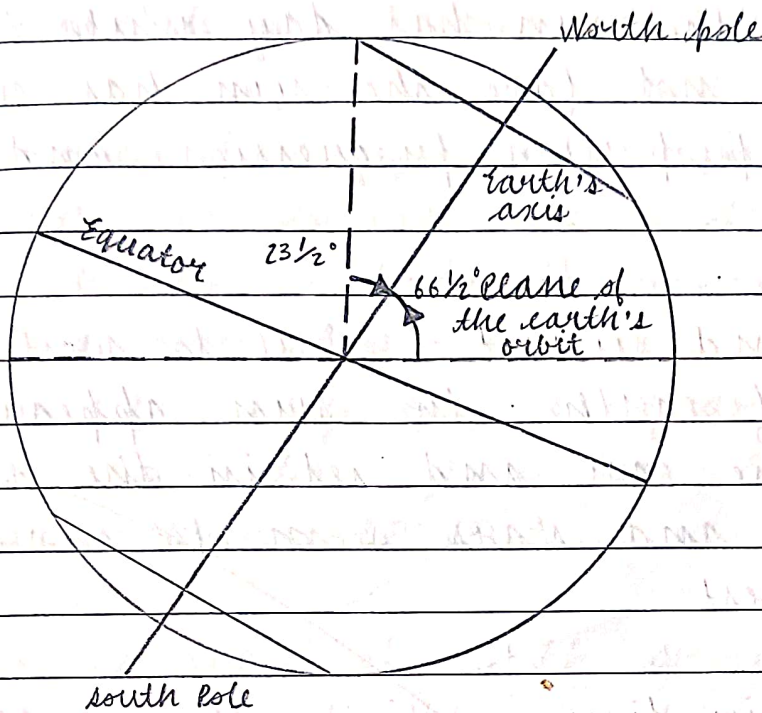 North pole
Earth's
axis
Equator
23 1/2°
66 1/2° Plane of
the earth's
orbit
South Pole